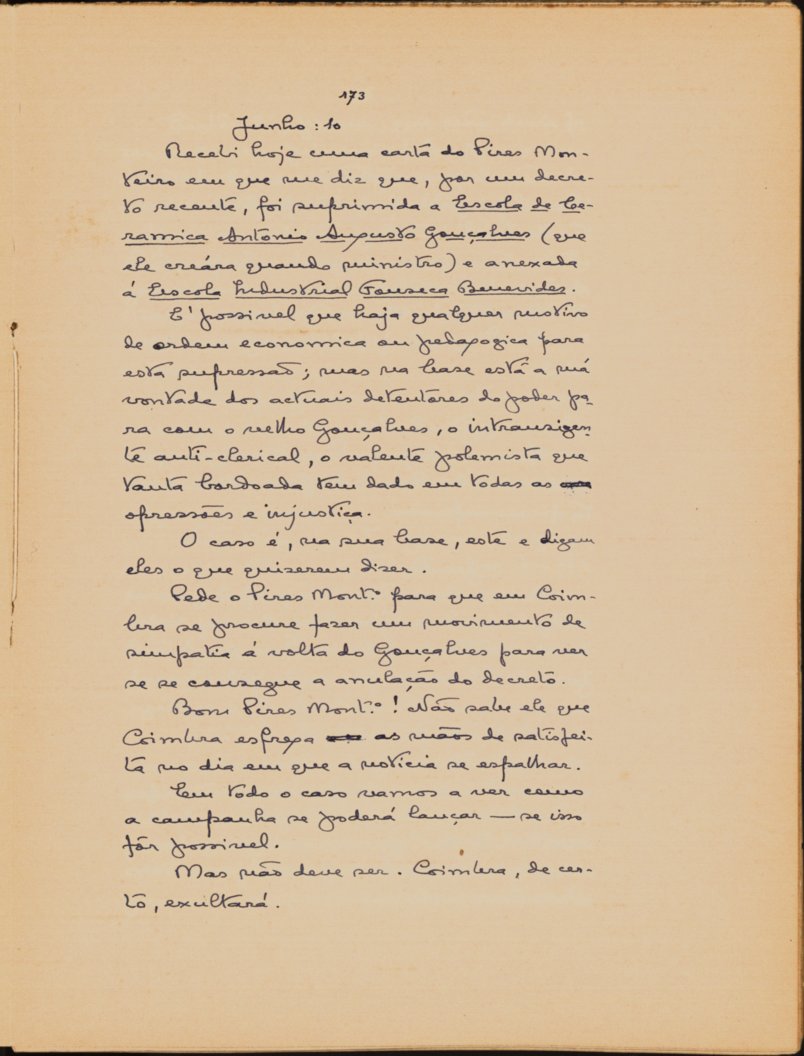 173
Junho: 10
Recebi hoje uma carta do Pires Mon-
teiro em que me diz que, por um decre-
to recente, foi suprimida a Escola de Ce-
ramica Antonio Augusto Gonçalves (que
ele creára quando ministro) e anexada
á Escola Industrial Fonseca Benevides.
E' possivel que haja qualquer motivo
de ordem economica ou pedagogica para
esta supressaõ; mas na base está a má
vontade dos actuais detentores do poder pa-
ra com o velho Gonçalves, o intransigen-
te anti-clerical, o valente polemista que
tanta bordoada tem dado em todas as
opressões e injustiça.
O caso é, na sua base, este e digam
eles o que quizerem dizer.
Pede o Pires Mont.º para que em Coim-
bra se procure fazer um movimento de
simpatia á volta do Gonçalves para ver
se se consegue a anulação do decreto.
Bom Pires Mont.º! Não sabe ele que
Coimbra esfrega as mãos de satisfei-
ta no dia em que a noticia se espalhar.
Em todo o caso vamos a ver como
a campanha se poderá lançar — se isso
fôr possivel.
Mas não deve ser. Coimbra, de cer-
to, exultará.